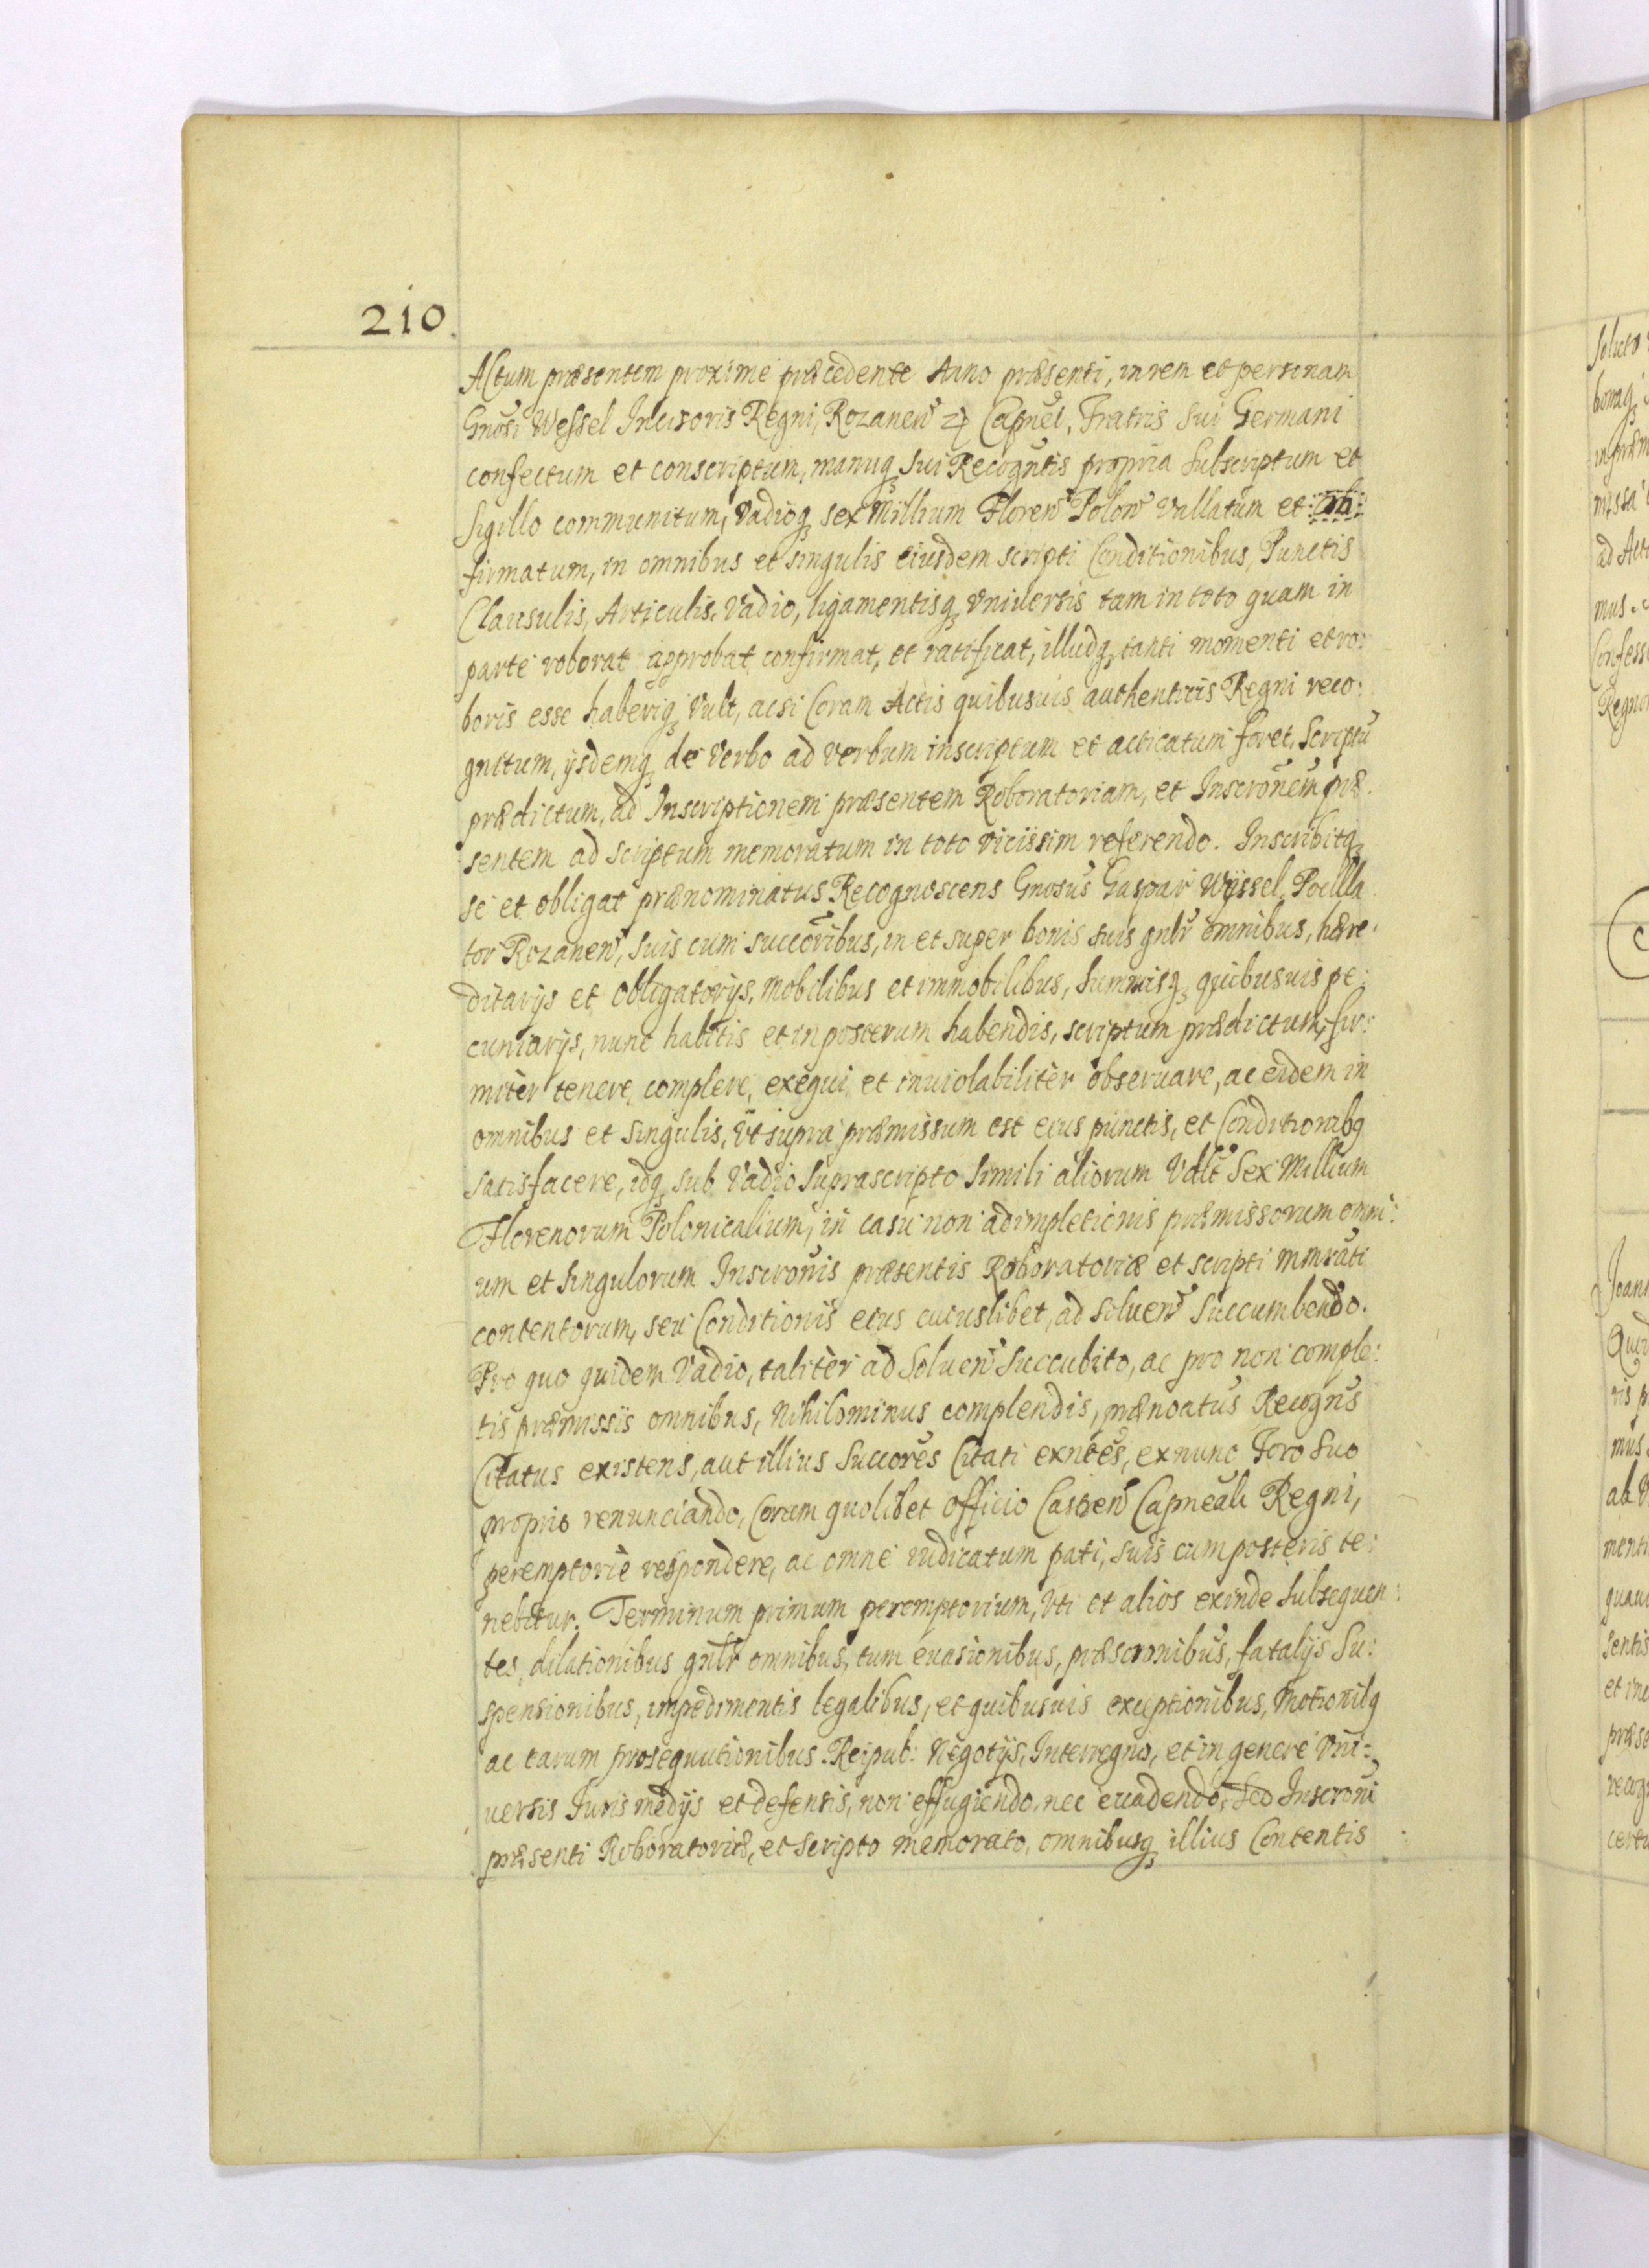 210
Actum præsentem proxime præcedente Anno præsenti, in rem et personam
Gnosi Wessel Incisoris Regni, Rozanen̄ & Capnei, Fratris sui Germani
confectum et conscriptum, manuq̨ sui Recogntis propria subscriptum et
sigillo communitum, vadioq̨ sex Millium Floren̄ Polon̄ vallatum et con:
firmatum, in omnibus et singulis eiusdem scripti Conditionibus, Punctis
Clausulis, Articulis, Vadio, ligamentisq̨ vniuersis tam in toto quam in
parte roborat approbat confirmat, et ratificat, illudq̨ tanti momenti et ro:
boris esse haberiq̨ vult, acsi Coram Actis quibusuis authenticis Regni reco:
gnitum, ijsdemq̨ de Verbo ad verbum inscriptum et acticatum foret, Scriptū
prædictum, ad Inscriptionem præsentem Roboratoriam, et Inscrōnem præ:
sentem ad scriptum memoratum in toto vicissim referendo. Inscribitq̨
se et obligat prænominatus Recognoscens Gnosus Gaspar Wijssel, Pocilla
tor Rozanen̄, suis cum succōribus, in et super bonis suis gnlr̄ omnibus, hære:
ditarijs et obligatorijs, mobilibus et immobilibus, summisq̨ quibusuis pe:
cuniarijs, nunc habitis et in posterum habendis, scriptum prædictum, fir:
mitèr tenere, complere, exequi, et inuiolabilitèr obseruare, ac eidem in
omnibus et singulis, vt supra præmissum est eius punctis, et Conditionibq
satisfacere, idq̨ sub Vadio suprascripto simili aliorum Vdlt Sex Millium
Florenorum Polonicalium, in casu non adimpletionis præmissorum omni:
um et singulorum Inscrōnis præsentis Roboratoriæ et scripti mmrāti
contentorum, seu Conditionis eius cuiuslibet, ad soluen̄ succumbendo.
Pro quo quidem Vadio, talitèr ad Soluen̄ succubito, ac pro non comple:
tis præmissis omnibus, nihilominus complendis, prænoatus Recogn̄s
Citatus existens, aut illius Succōres Citati exn̄tes, exnunc Foro suo
proprio renunciando, Coram quolibet officio Castren̄ Capneali Regni,
peremptoriè respondere, ac omne iudicatum pati, suis cum posteris te:
nebitur. Terminum primum peremptorium, vti et alios exinde subsequen:
tes, dilationibus gnlr̄ omnibus, tum euasionibus, præscr̄onibus, fatalijs su:
spensionibus, impedimentis legalibus, et quibusuis exceptionibus, motionibq
ac earum prosequutionibus. Reipub: Negotijs, Interregno, et in genere vni:
uersis Iuris medijs et defensis, non effugiendo, nec euadendo, sed Inscrōni
præsenti Roboratoriæ, et scripto memorato, omnibusq̨ illius Contentis